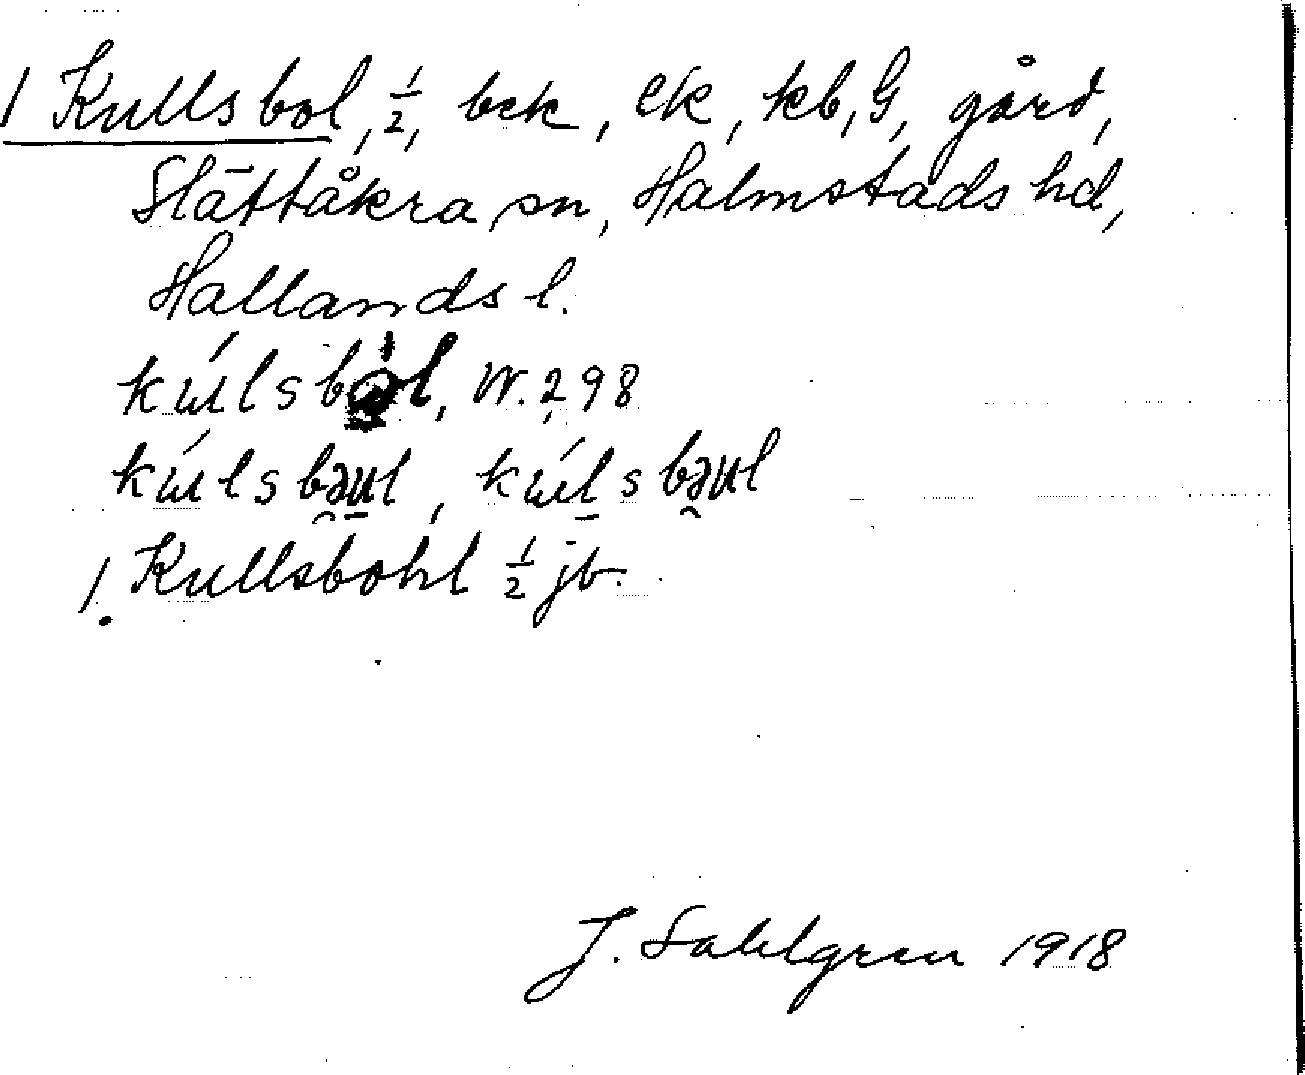 1 Kullsbol, ½, bek, ek, kb, G, gård,
Slättåkra sn, Halmstads hd,
Hallands l.
W. 298
1. Kullsbohl ½ jb.
J. Sahlgren 1918